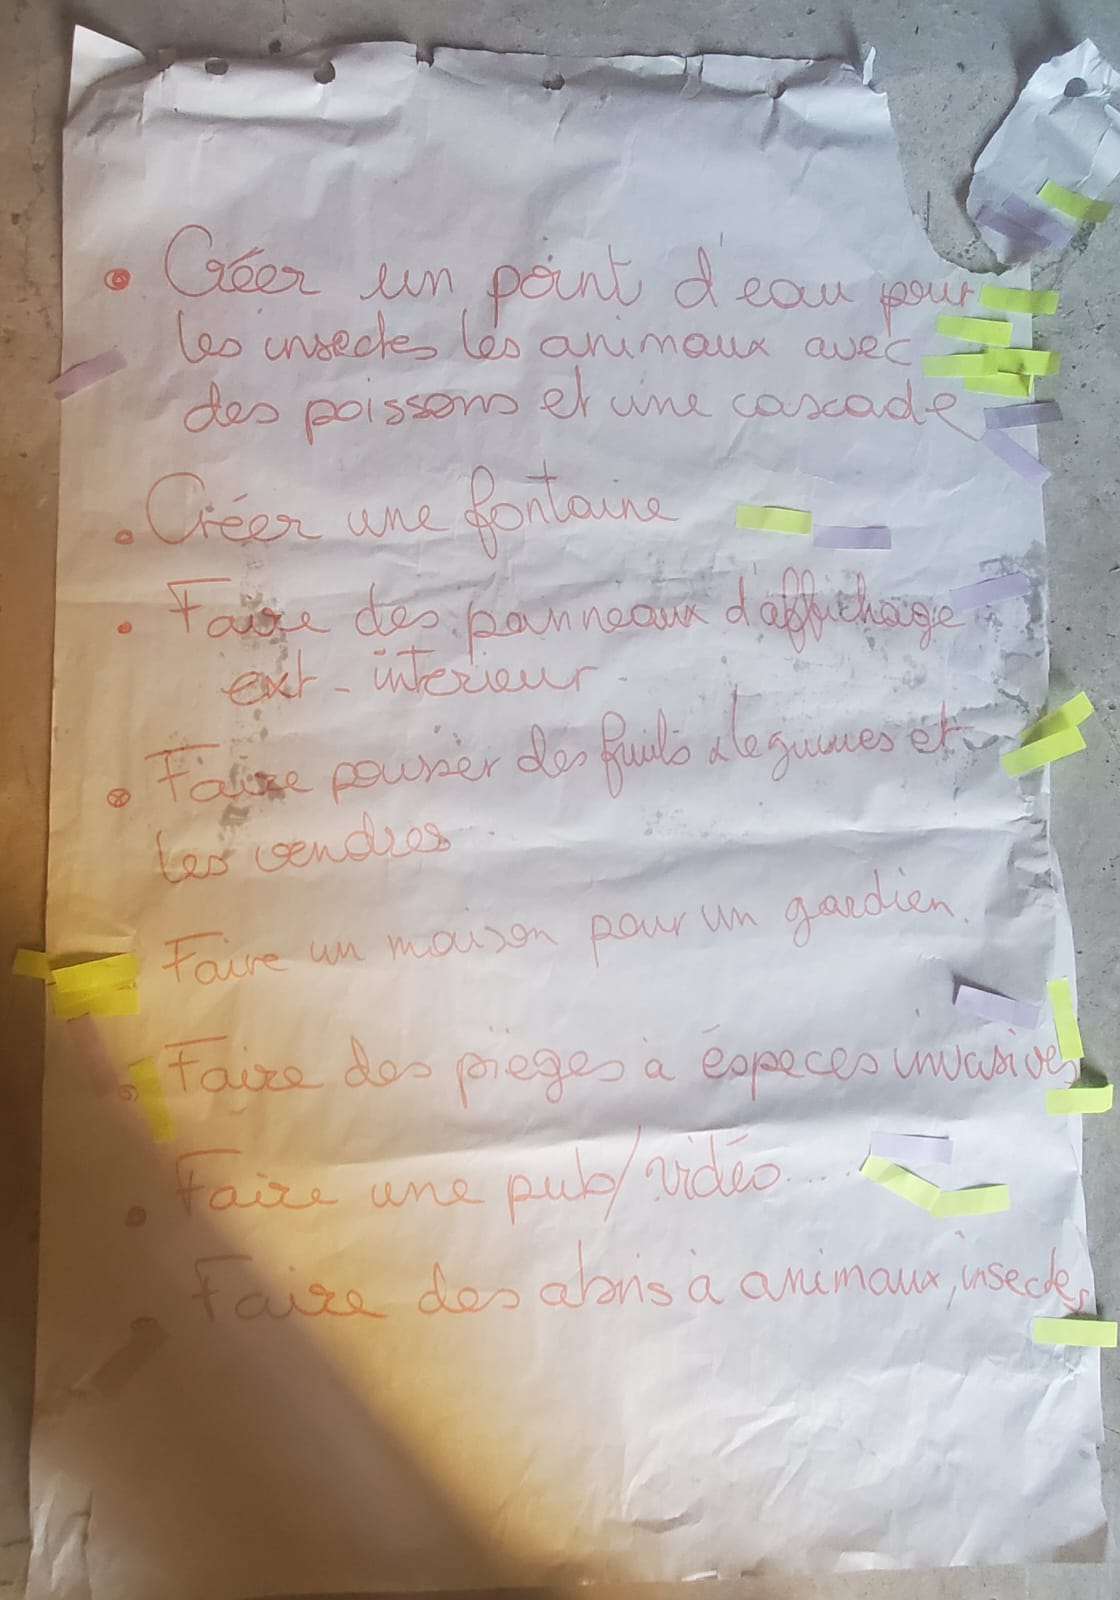 • Créer un point d'eau pour
les insectes les animaux avec
des poissons et une cascade
• Créer une fontaine
• Faire des panneaux d'affichage
ext - interieur
• Faire pousser des fruits & legumes et
les vendres
Faire un maison pour un gardien.
• Faire des pièges à éspeces invasives
• Faire une pub/vidéo....
• Faire des abris à animaux, insectes